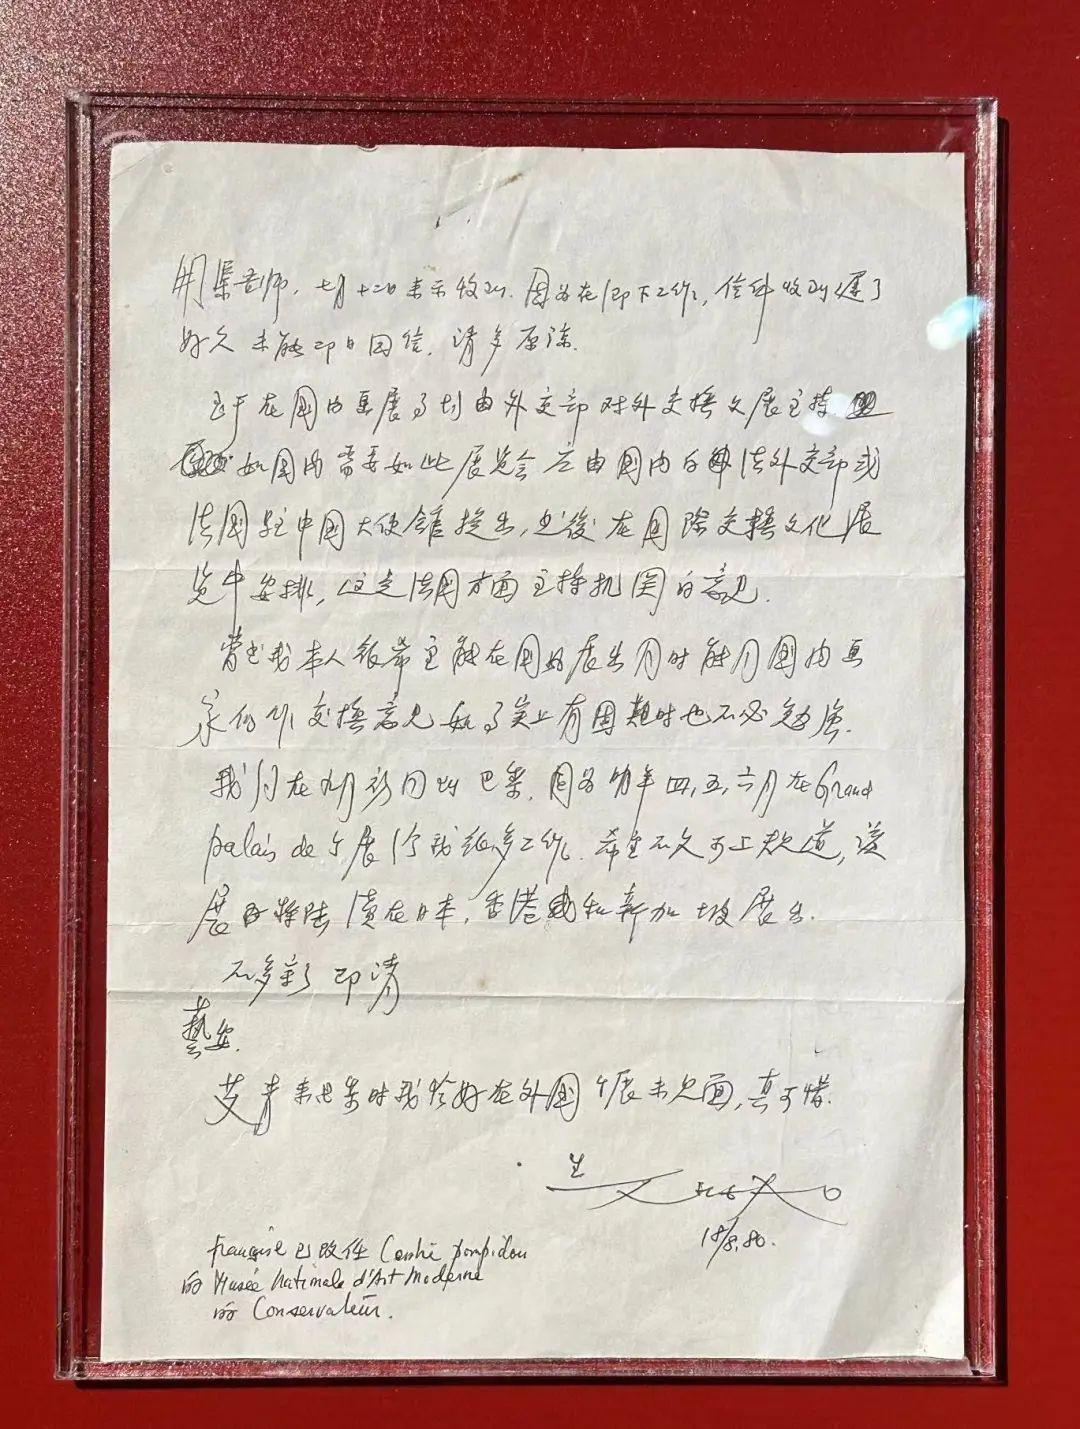 开渠老师，七月十二日来示收到，因为在乡下工作，信件收到迟了
好久未能即日回信，请多原谅。
至于在国内画展事则由外交部对外交换文展主持
如国内需要如此展览会应由国内向法外交部或
法国驻中国大使馆提出，然后在国际交换文化展
览中安排，这是法国方面主持机关的意见。
当然我本人很希望能在国内展出同时能同国内画
家们交换意见如事实上有困难时也不必勉强。
我们在九月初回到巴黎，因为明年四，五，六月在Grand
palais de 个展给我很多工作。希望不久可上轨道，该
展将陆续在日本，香港和新加坡展出。
不多写了 即请
艺安。
艾青来巴黎时我恰好在外国个展未见面，真可惜。
生
18/8.80.
Françoise 已改任 Centre pompidou
的 Musée Nationale d'Art Moderne
的 Conservateur.